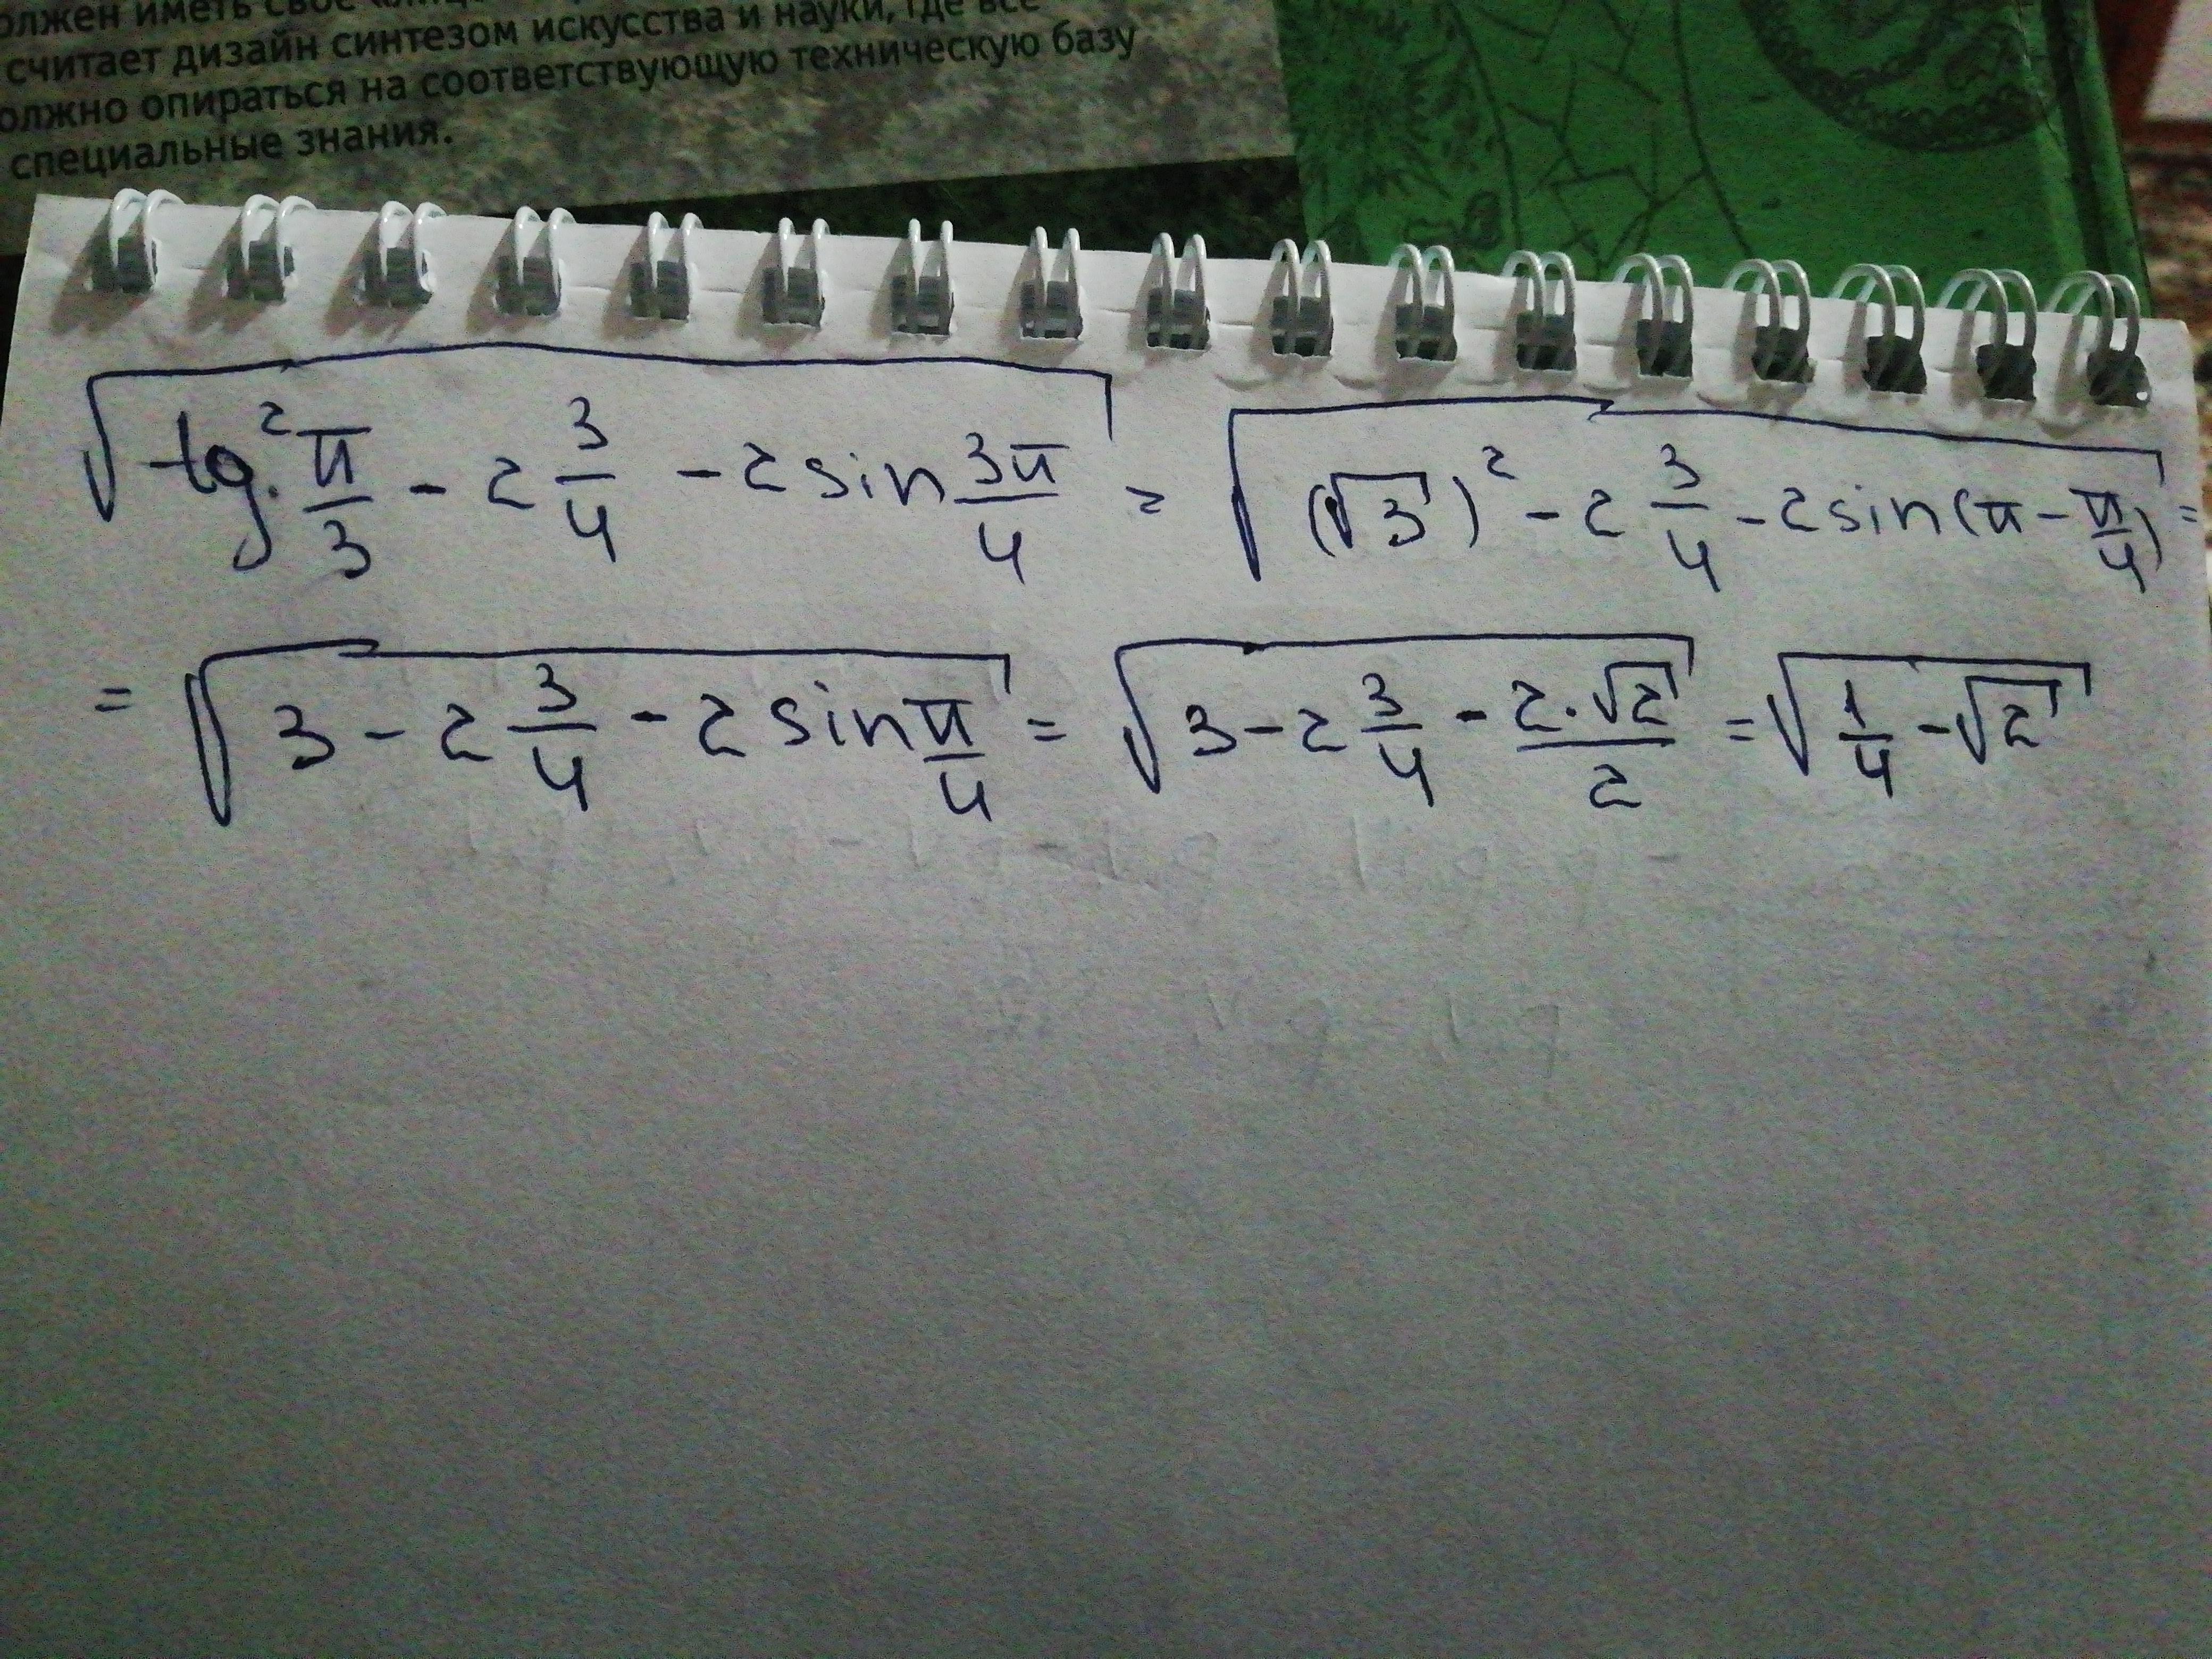 должен иметь свое
считает дизайн синтезом искусства и науки, где все
должно опираться на соответствующую техническую базу
специальные знания.
√(tg² π/3 - 2 3/4 - 2 sin 3π/4) = √((√3)² - 2 3/4 - 2 sin(π - π/4)) =
= √(3 - 2 3/4 - 2 sin π/4) = √(3 - 2 3/4 - 2·√2/2) = √(1/4 - √2)